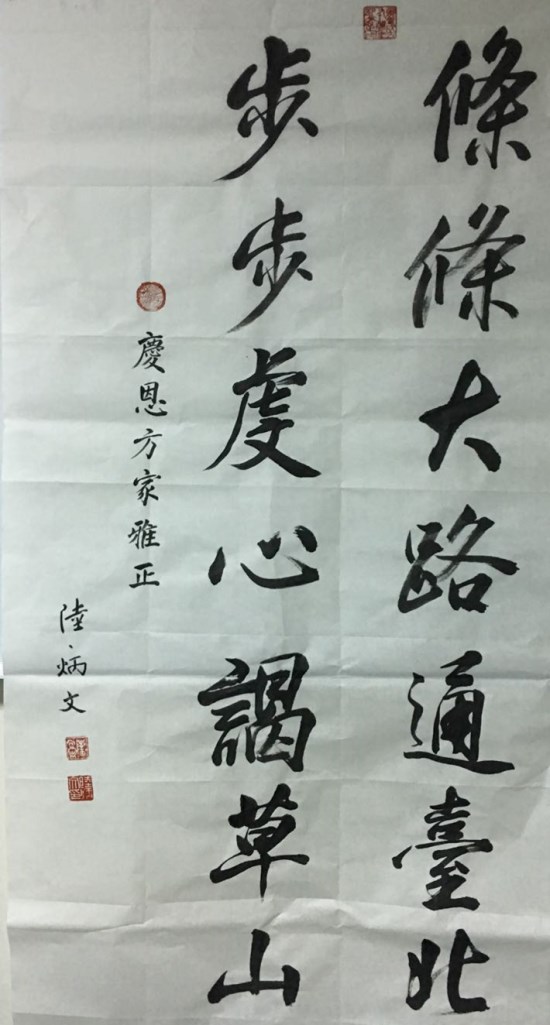 條條大路通臺北
步步虔心謁草山
慶恩方家雅正
陸炳文